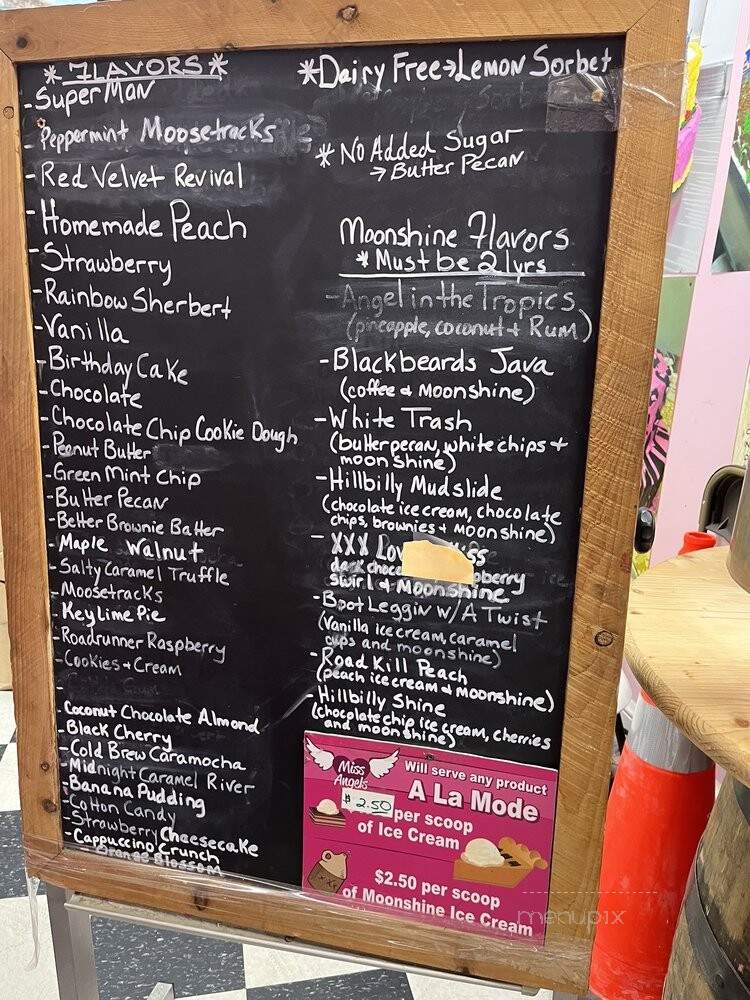 * FLAVORS *
- SuperMan
- Peppermint Moosetracks
- Red Velvet Revival
- Homemade Peach
- Strawberry
- Rainbow Sherbert
- Vanilla
- Birthday Cake
- Chocolate
- Chocolate Chip Cookie Dough
- Peanut Butter
- Green Mint Chip
- Butter Pecan
- Better Brownie Batter
- Maple Walnut
- Salty Caramel Truffle
- Moosetracks
- Key Lime Pie
- Roadrunner Raspberry
- Cookies + Cream
-
- Coconut Chocolate Almond
- Black Cherry
- Cold Brew Caramocha
- Midnight Caramel River
- Banana Pudding
- Cotton Candy
- Strawberry Cheesecake
- Cappuccino Crunch
- Orange Blossom
* Dairy Free → Lemon Sorbet
* No Added Sugar
→ Butter Pecan
Moonshine Flavors
* Must be 21yrs
- Angel in the Tropics
(pineapple, coconut + Rum)
- Blackbeards Java
(coffee & Moonshine)
- White Trash
(butter pecan, white chips +
moon shine)
- Hillbilly Mudslide
(chocolate ice cream, chocolate
chips, brownies + moon shine)
- XXX
swirl & Moonshine
- Boot Leggin w/ A Twist
(Vanilla ice cream, caramel
cups and moonshine)
- Road Kill Peach
(peach ice cream & Moonshine)
- Hillbilly Shine
(chocolate chip ice cream, cherries
and moon shine)
Miss
Angels
Will serve any product
A La Mode
$2.50 per scoop
of Ice Cream
XXX
$2.50 per scoop
of Moonshine Ice Cream
menupix